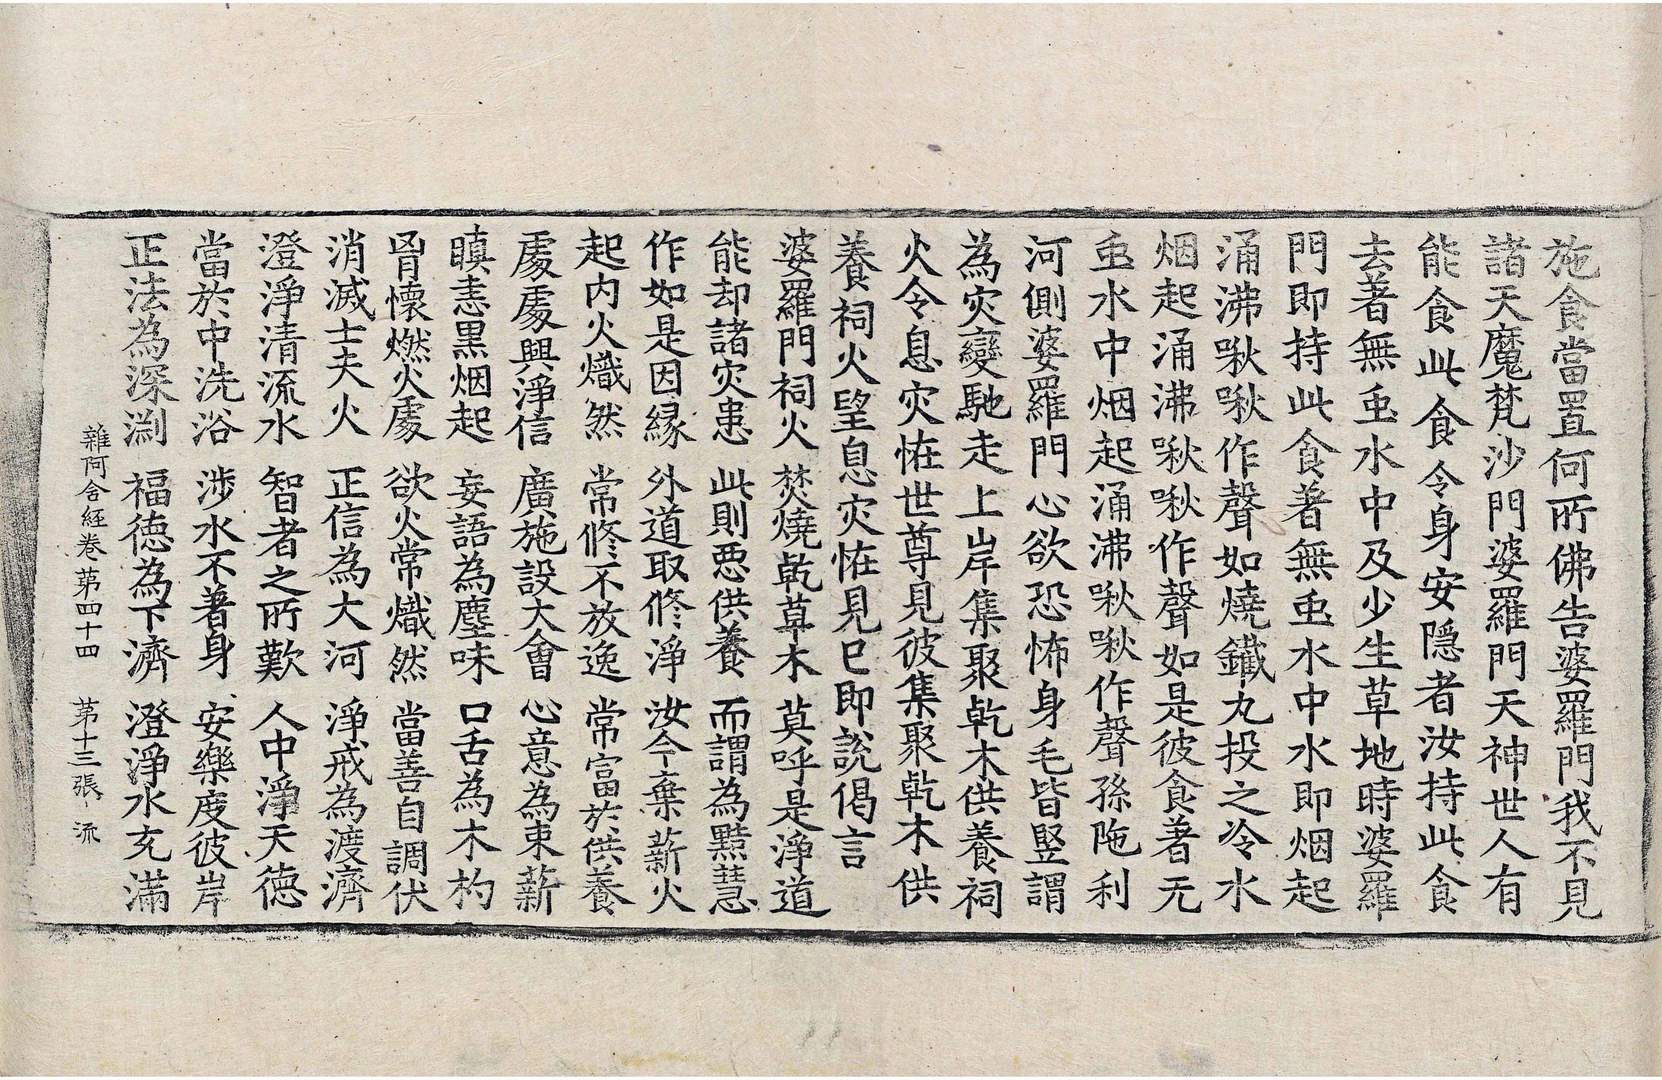 施食當置何所佛告婆羅門我不見
諸天魔梵沙門婆羅門天神世人有
能食此食令身安隱者汝持此食
去著無虫水中及少生草地時婆羅
門即持此食著無虫水中水即烟起
涌沸啾啾作聲如燒鐵丸投之冷水
烟起涌沸啾啾作聲如是彼食著无
虫水中烟起涌沸啾啾作聲孫陁利
河側婆羅門心欲恐怖身毛皆竪謂
為灾變馳走上岸集聚乹木供養祠
火令息灾恠世尊見彼集聚乹木供
養祠火望息灾恠見已即說偈言
婆羅門祠火 焚燒乹草木 莫呼是淨道
能却諸灾患 此則惡供養 而謂為黠慧
作如是因緣 外道取修淨 汝今棄薪火
起内火熾然 常修不放逸 常富於供養
處處興淨信 廣施設大會 心意為束薪
瞋恚黑烟起 妄語為塵味 口舌為木杓
胷懷燃火處 欲火常熾然 當善自調伏
消滅士夫火 正信為大河 淨戒為渡濟
澄淨清流水 智者之所歎 人中淨天德
當於中洗浴 涉水不著身 安樂度彼岸
正法為深渕 福德為下濟 澄淨水充滿
雜阿含經卷苐四十四 苐十三張 流